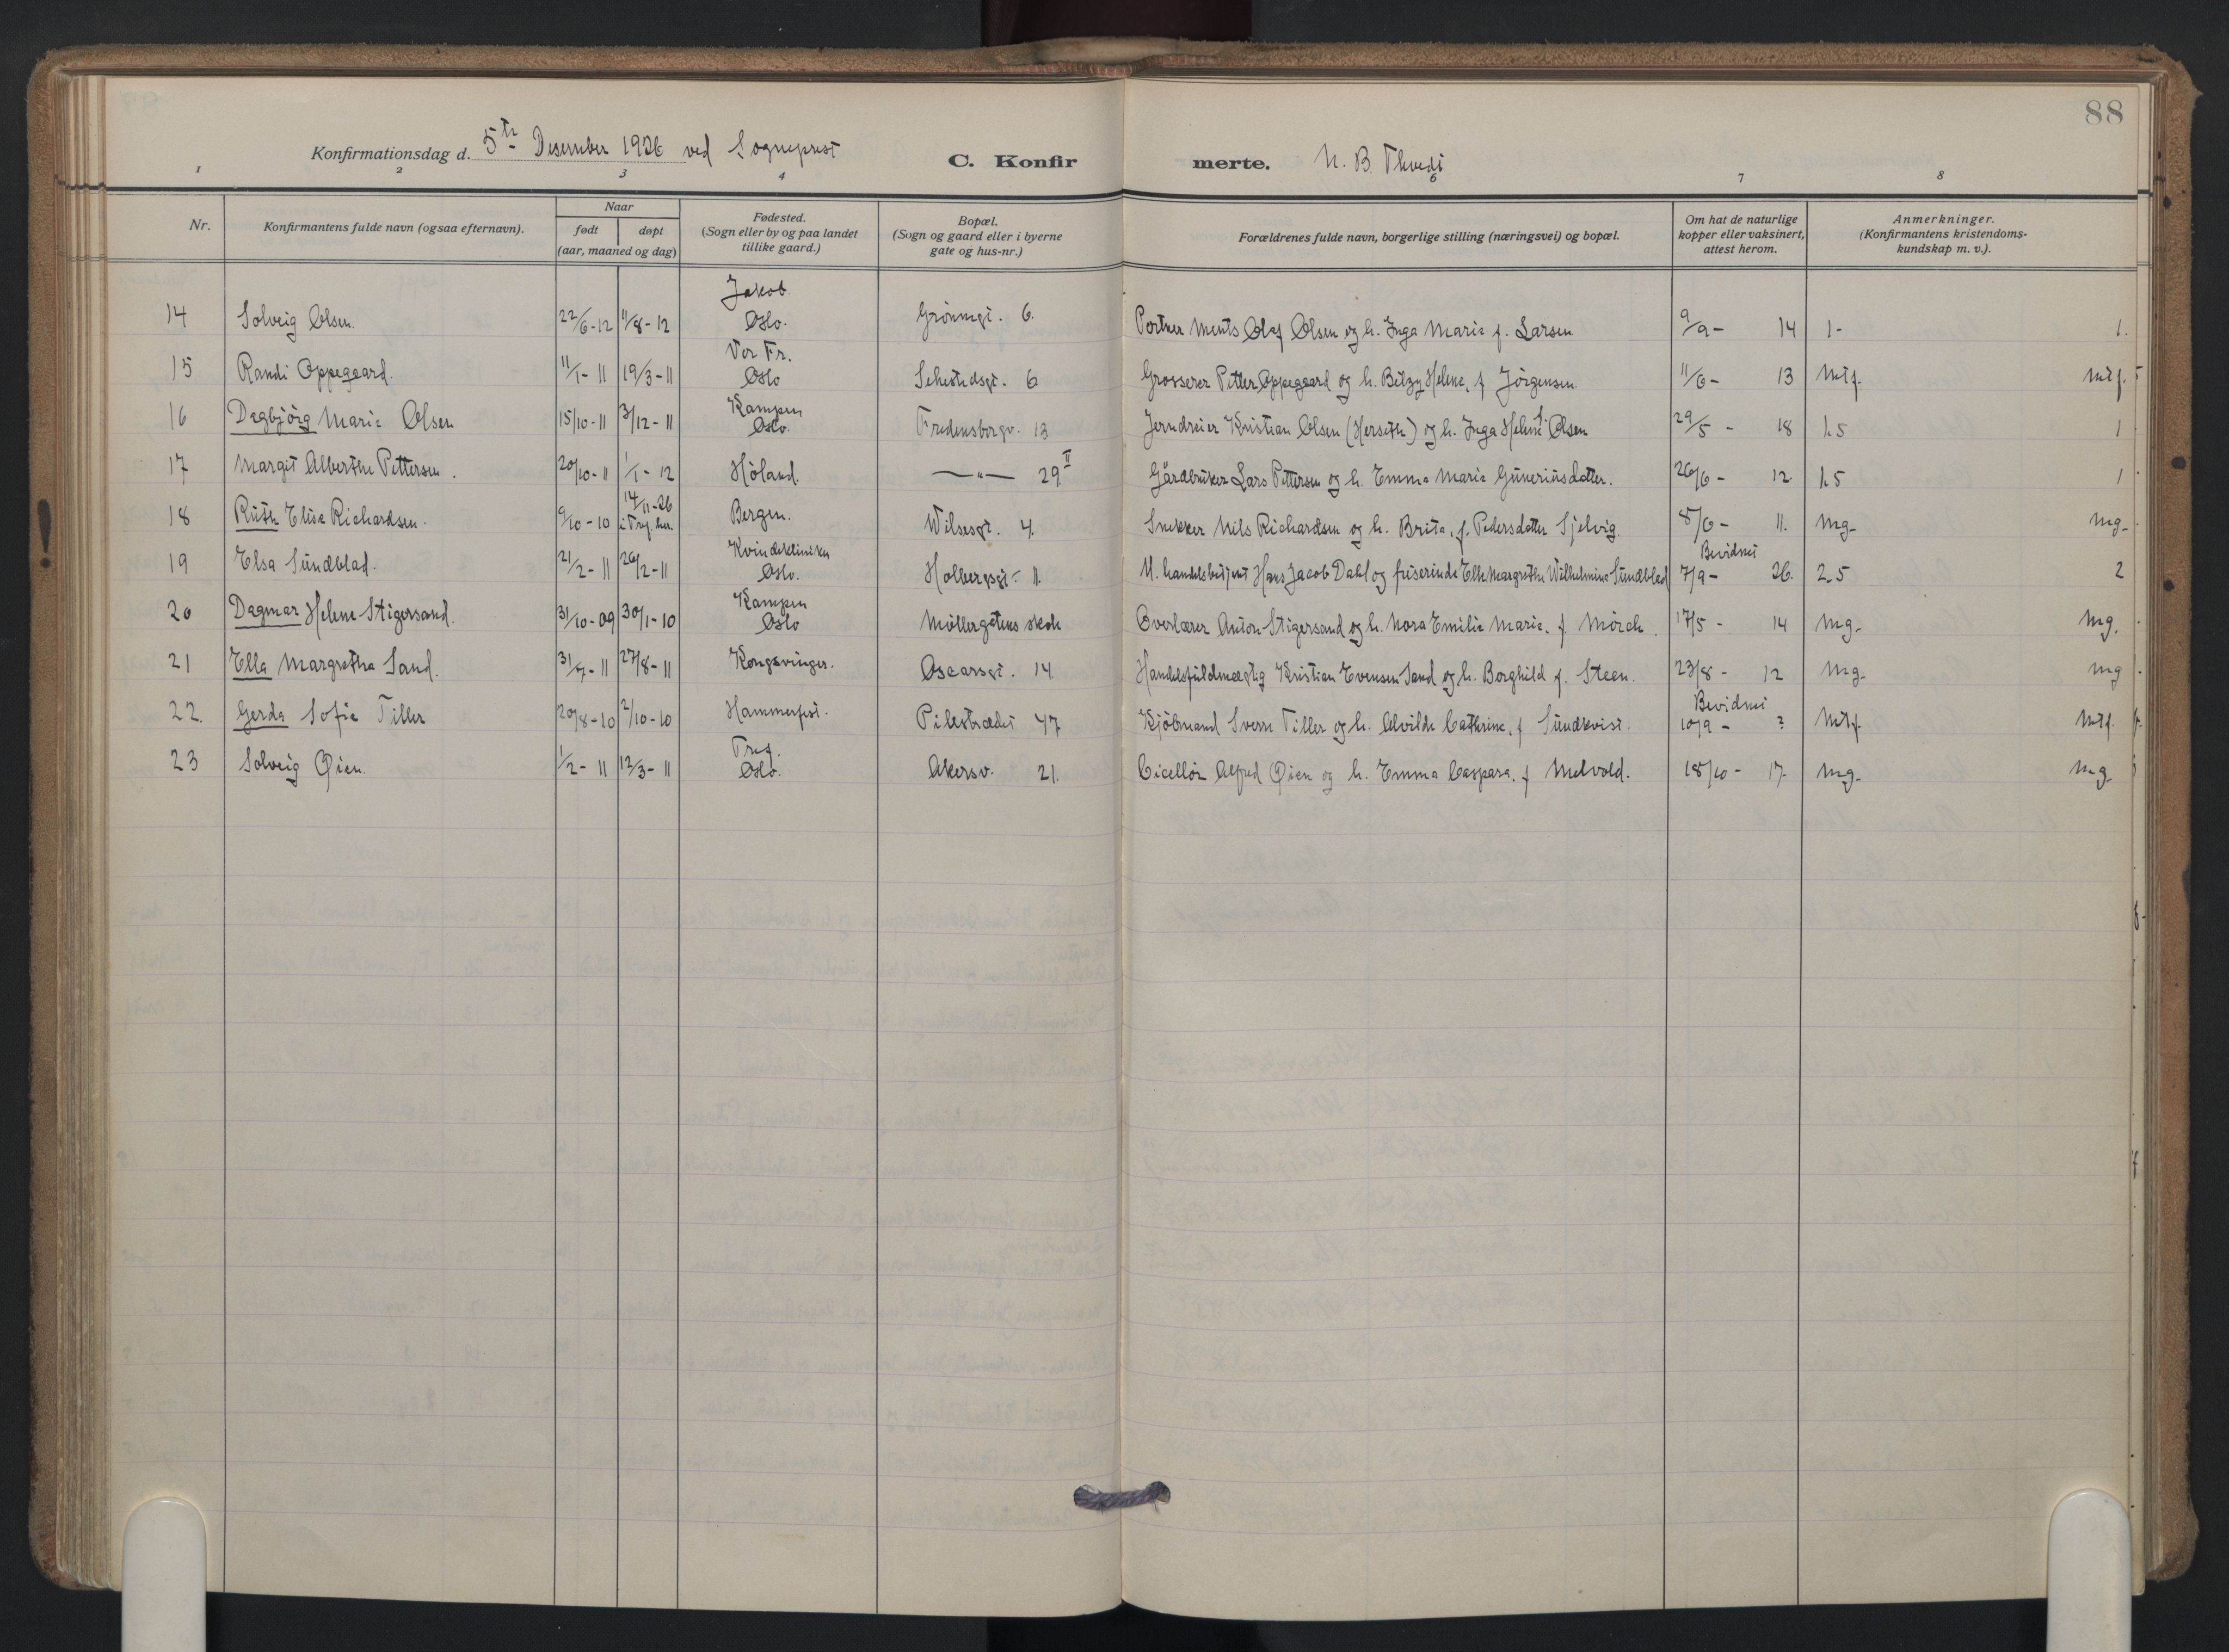 88
Konfirmationsdag d. 5te Desember 1926 ved Sogneprest C. Konfirmerte. N. B. Thvedt
1 2 3 4 6 7 8
Nr. Konfirmantens fulde navn (ogsaa efternavn). Naar født døpt (aar, maaned og dag) Fødested. (Sogn eller by og paa landet tillike gaard.) Bopæl. (Sogn og gaard eller i byerne gate og hus-nr.) Forældrenes fulde navn, borgerlige stilling (næringsvei) og bopæl. Om hat de naturlige kopper eller vaksinert, attest herom. Anmerkninger. (Konfirmantens kristendoms-kundskap m. v.).
14 Solveig Olsen. 22/6-12 11/8-12 Jakob Oslo. Grönnegt. 6. Portner Olaf Olsen og h. Inga Marie f. Larsen 9/9- 14 1- 1.
15 Randi Oppegaard. 11/1-11 19/3-11 Vor Fr. Oslo Sehestedsgt. 6 Grosserer Petter Oppegaard og h. Betzy Helene, f Jörgensen 11/6- 13 Mtf. Mtf.
16 Dagbjörg Marie Olsen 15/10-11 3/12-11 Kampen Oslo. Fredensborgv. 13 Jerndreier Kristian Olsen (Herseth) og h. Inga Helene f. Olsen 29/5- 18 1.5 1
17 Margit Alberthe Pettersen. 20/10-11 1/1-12 Höland. —"— 29 II Gårdbruker Lars Pettersen og h. Emma Marie Guneriusdatter. 26/6- 12 1.5 1
18 Ruth Elise Richardsen. 9/10-10 14/11-26 i Tref. her. Bergen. Wilsesgt. 4. Snekker Nils Richardsen og h. Brita, f. Pedersdatter Sjelvig. 8/6- 11. Mg- Mg-
19 Elsa Sundblad. 21/2-11 26/2-11 Kvindekliniken Oslo. Holbergsgt. 11. U. handelsbetjent Hans Jacob Dahl og friserinde Elle Margrethe Wilhelmine Sundblad Bevidnet 7/9- 26. 2.5 2
20 Dagmar Helene Stigersand. 31/10-09 30/1-10 Kampen Oslo Möllergatens skole Overlærer Anton Stigersand og h. Nora Emilie Marie, f. Mörch. 17/5- 14 Mg. Mg.
21 Ella Margrethe Sand. 31/7-11 27/8-11 Kongsvinger. Oscarsgt. 14 Handelsfuldmægtig Kristian Evensen Sand og h. Borghild f. Steen. 23/8- 12 Mg- Mg
22. Gerda Sofie Tiller 20/8-10 2/10-10 Hammerfest. Pilestrædet 47 Kjöbmand Sverre Tiller og h. Alvilde Cathrine, f Sundkvist. Bevidnet 10/9- ? Mtf. Mtf.
23 Solveig Øien. 1/2-11 12/3-11 Tref. Oslo. Akersv. 21. Cicellör Alfred Øien og h. Emma Caspara, f Melvold. 18/10- 17. Mg- Mg-